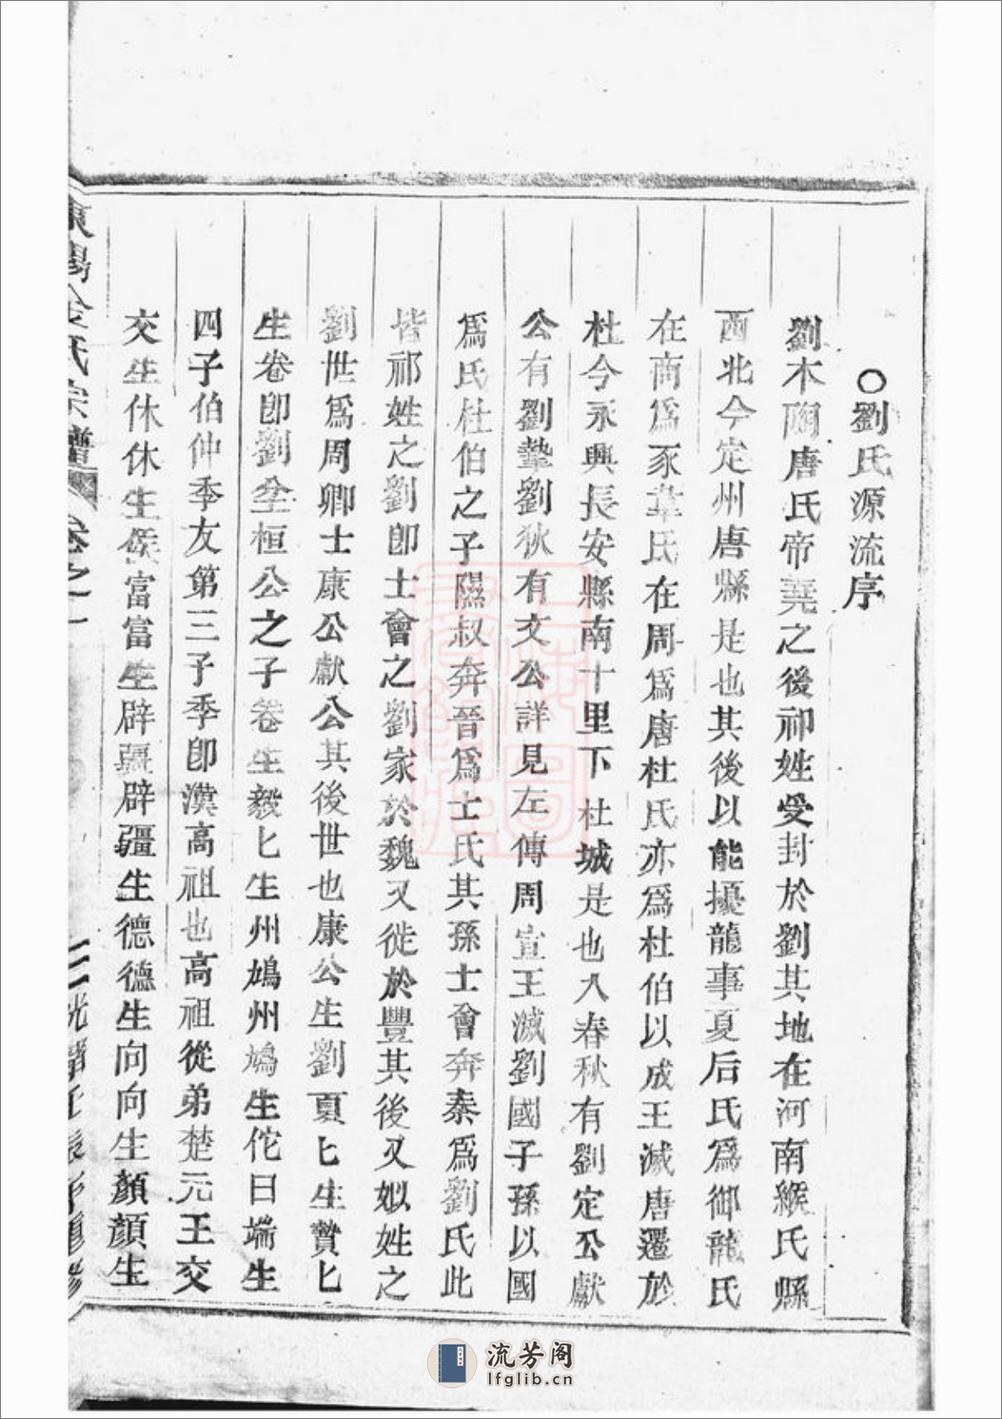 ○劉氏源流序
劉木陶唐氏帝堯之後祁姓受封於劉其地在河南緱氏縣
西北今定州唐縣是也其後以能擾龍事夏后氏爲御龍氏
在商爲豕韋氏在周爲唐杜氏亦爲杜伯以成王滅唐遷於
杜今永興長安縣南十里下杜城是也入春秋有劉定公獻
公有劉摯劉狄有文公詳見左傳周宣王滅劉國子孫以國
爲氏杜伯之子隰叔奔晉爲士氏其孫士會奔秦爲劉氏此
皆祁姓之劉卽士會之劉家於魏又徙於豐其後又姒姓之
劉世爲周卿士康公獻公其後世也康公生劉夏匕生贄匕
生卷卽劉坌桓公之子卷生毅匕生州鳩州鳩生佗曰端生
四子伯仲季友第三子季卽漢高祖也高祖從弟楚元王交
交生休休生侯富富生辟疆辟疆生德德生向向生顏顏生
東陽金氏宗譜 卷之一
二 光緒壬辰年重修
流芳阁
lfglib.cn